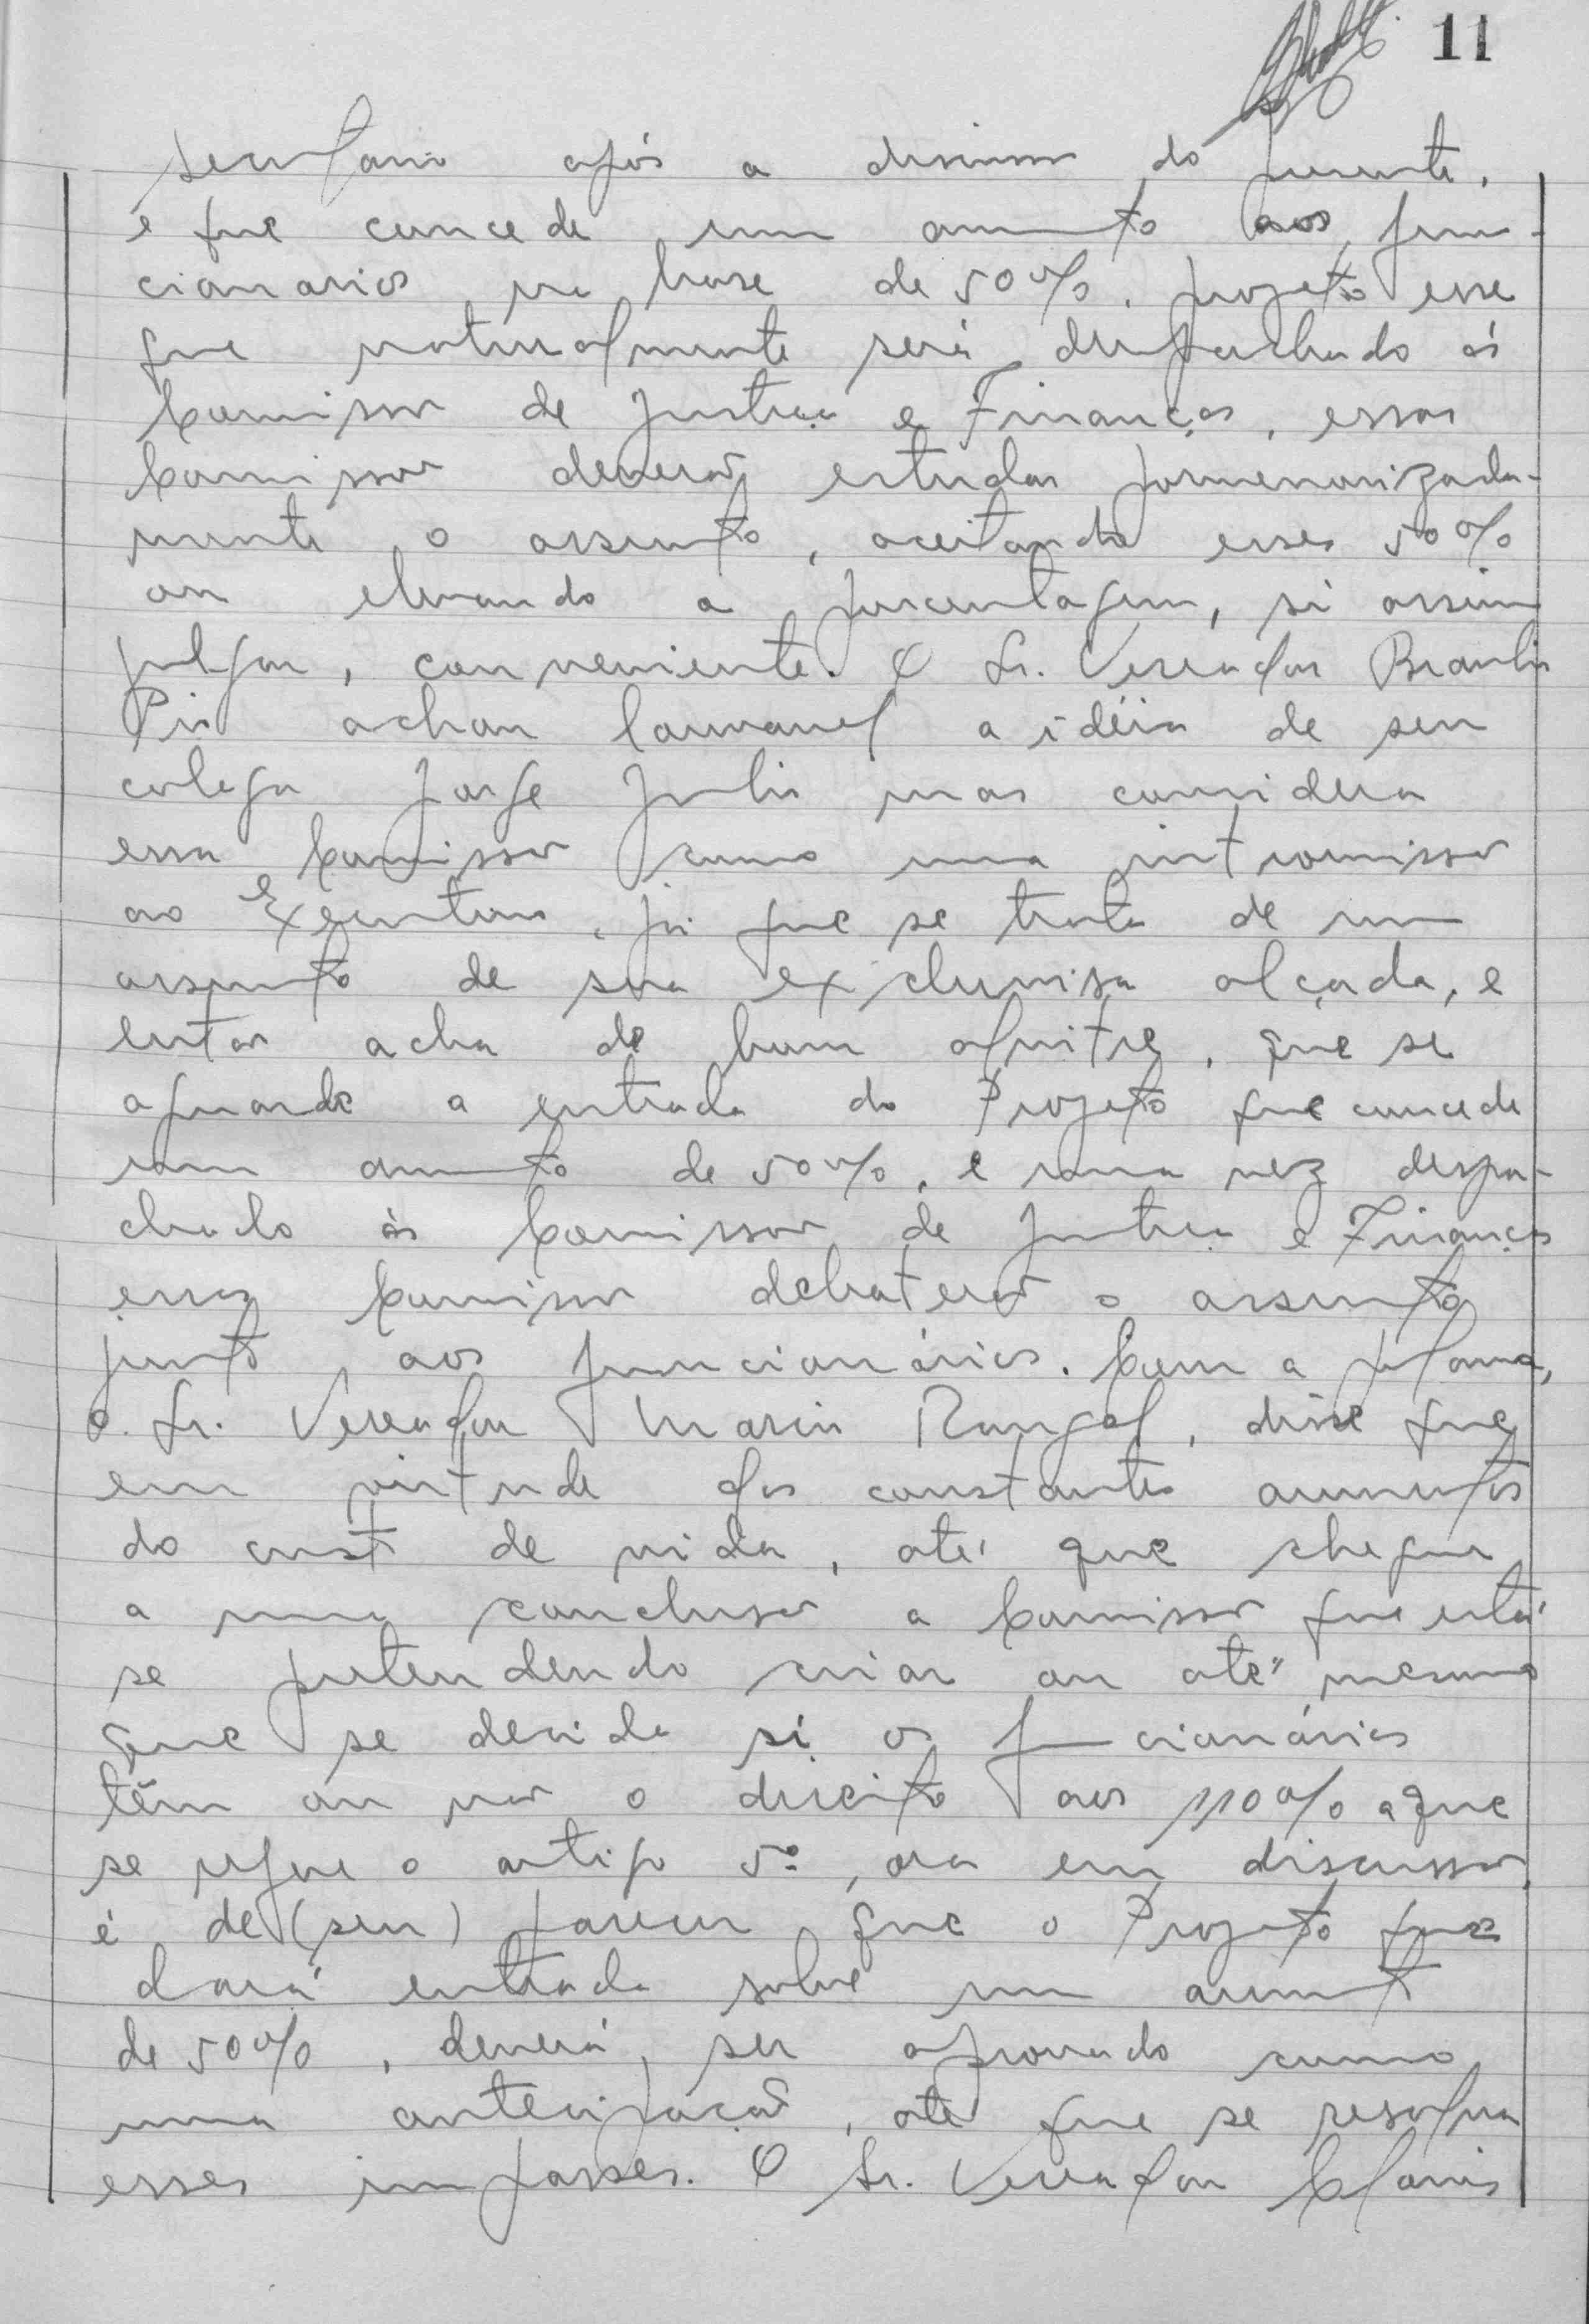 11
após a discussão do presente,
e que concede um aumento aos fun-
cionarios na base de 50%, projeto esse
que naturalmente será despachado ás
Comissão de Justiça e Finanças, essas
Comissão deverão estudar pormenorizada-
mente o assunto, aceitando esses 50%
ou elevando a porcentagem, si assim
julgar, conveniente. O Sr. Vereador Braulio
Pio achou louvavel a idéia de seu
colega Jorge Julio mas considera
essa Comissão como uma intromissão
ao Executivo, já que se trata de um
assunto de sua exclusiva alçada, e
então acha de bom alvitre, que se
aguarde a entrada do Projeto que concede
um aumento de 50%, e uma vez despa-
chado ás Comissão de Justiça e Finanças
essas Comissão debaterão o assunto
junto aos funcionários. Com a palavra,
o. Sr. Vereador Mario Rangel, disse que
em virtude dos constantes aumentos
do custo de vida, até que chegue
a uma conclusão a Comissão que está
se pretendendo criar ou até mesmo
que se decida si os funcionários
têm ou não o direito aos 110% a que
se refere o artigo 5º, ora em discussão,
é de (seu) parecer que o Projeto que
dará entrada sobre um aumento
de 50%, deverá, ser aprovado como
uma antecipação, até que se resolva
esses impasses. O Sr. Vereador Clovis